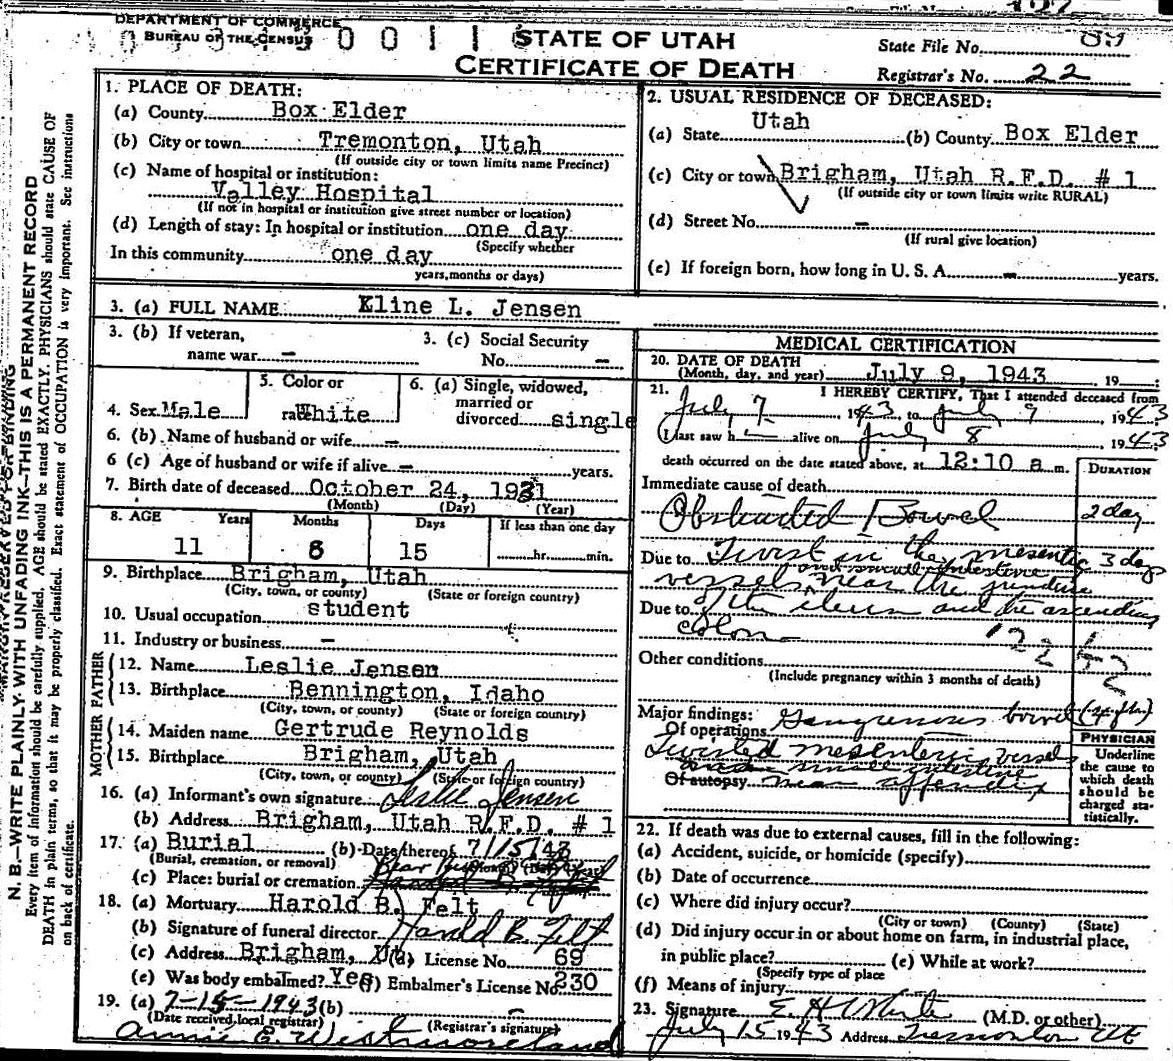 DEPARTMENT OF COMMERCE
BUREAU OF THE CENSUS
0 0 1 1
STATE OF UTAH
CERTIFICATE OF DEATH
State File No. 89
Registrar's No. 22
N. B.—WRITE PLAINLY WITH UNFADING INK—THIS IS A PERMANENT RECORD
Every item of information should be carefully supplied. AGE should be stated EXACTLY. PHYSICIANS should state CAUSE OF
DEATH in plain terms, so that it may be properly classified. Exact statement of OCCUPATION is very important. See instructions
on back of certificate.
1. PLACE OF DEATH:
(a) County Box Elder
(b) City or town Tremonton, Utah
(If outside city or town limits name Precinct)
(c) Name of hospital or institution:
Valley Hospital
(If not in hospital or institution give street number or location)
(d) Length of stay: In hospital or institution one day
(Specify whether
In this community one day
years, months or days)
2. USUAL RESIDENCE OF DECEASED:
(a) State Utah (b) County Box Elder
(c) City or town Brigham, Utah R.F.D. # 1
(If outside city or town limits write RURAL)
(d) Street No. –
(If rural give location)
(e) If foreign born, how long in U. S. A. – years.
3. (a) FULL NAME Kline L. Jensen
3. (b) If veteran,
name war –
3. (c) Social Security
No. –
4. Sex Male
5. Color or
race White
6. (a) Single, widowed,
married or
divorced single
6. (b) Name of husband or wife –
6 (c) Age of husband or wife if alive – years.
7. Birth date of deceased October 24, 1931
(Month) (Day) (Year)
8. AGE Years Months Days If less than one day
11 8 15 hr. min.
9. Birthplace Brigham, Utah
(City, town, or county) (State or foreign country)
10. Usual occupation student
11. Industry or business –
FATHER
12. Name Leslie Jensen
13. Birthplace Bennington, Idaho
(City, town, or county) (State or foreign country)
MOTHER
14. Maiden name Gertrude Reynolds
15. Birthplace Brigham, Utah
(City, town, or county) (State or foreign country)
16. (a) Informant's own signature Leslie Jensen
(b) Address Brigham, Utah R.F.D. # 1
17. (a) Burial (b) Date thereof 7/15/43
(Burial, cremation, or removal)
(c) Place: burial or cremation
18. (a) Mortuary Harold B. Felt
(b) Signature of funeral director Harold B. Felt
(c) Address Brigham, U (d) License No. 69
(e) Was body embalmed? Yes (f) Embalmer's License No. 230
19. (a) 7-15-1943 (b) –
(Date received local registrar) (Registrar's signature)
Annie E. Westmoreland
MEDICAL CERTIFICATION
20. DATE OF DEATH
(Month, day, and year) July 9, 1943 19
21. I HEREBY CERTIFY, That I attended deceased from
July 7 1943 to July 9, 1943
I last saw h alive on July 8 1943
death occurred on the date stated above, at 12:10 a m.
DURATION
Immediate cause of death
Obstructed Bowel 2 day
Due to Twist in the mesenteric 3 days
and small intestine
vessels near the juncture
Due to of the ileum and the ascending
colon
122
Other conditions
(Include pregnancy within 3 months of death)
Major findings: Gangrenous bowel (4 ft)
Of operations
Twisted mesenteric vessels
and small intestine
Of autopsy near appendix
PHYSICIAN
Underline
the cause to
which death
should be
charged sta-
tistically.
22. If death was due to external causes, fill in the following:
(a) Accident, suicide, or homicide (specify)
(b) Date of occurrence
(c) Where did injury occur?
(City or town) (County) (State)
(d) Did injury occur in or about home on farm, in industrial place,
in public place? (e) While at work?
(Specify type of place
(f) Means of injury
23. Signature E. H. White (M.D. or other)
July 15 1943 Address Tremonton Ut